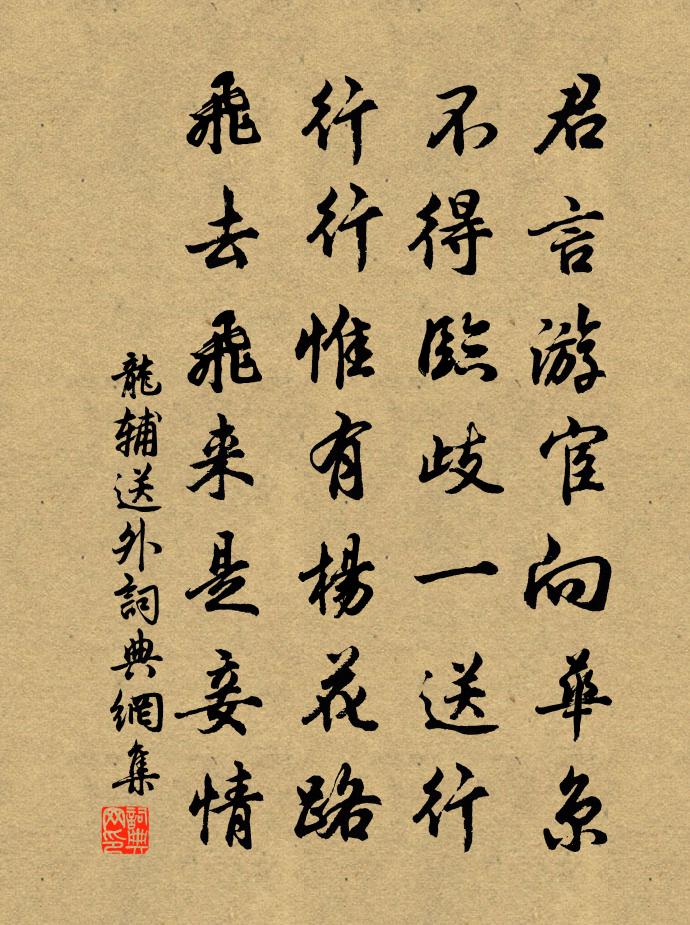 君言游宦向華京
不得臨歧一送行
行行惟有楊花路
飛去飛来是妾情
龍輔送外詞典網集
詞典网印